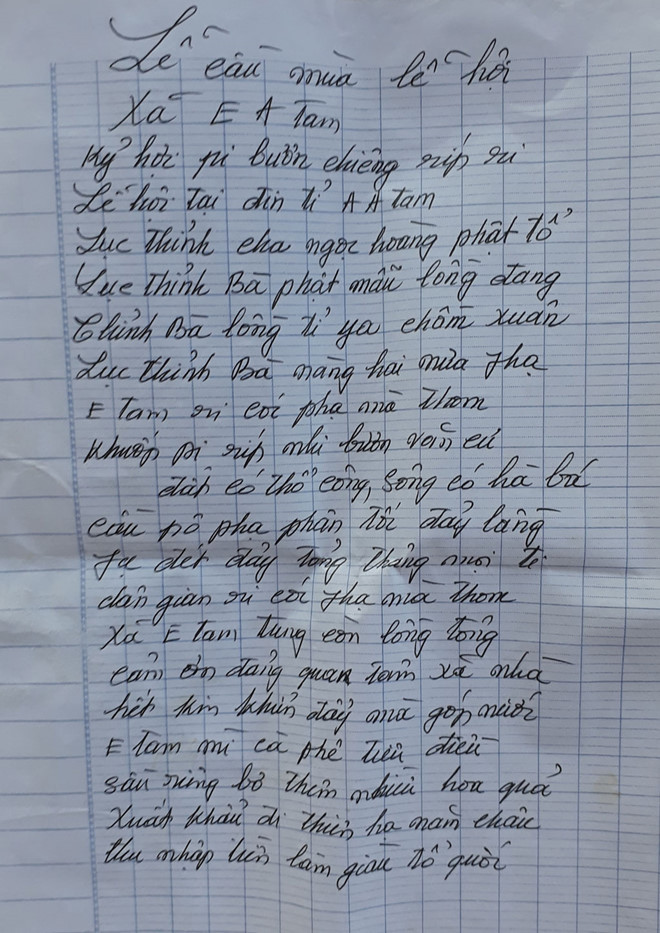 Lễ cầu mùa lễ hội
Xã E A Tam
Kỷ hội pi bươn chiêng síp si
Lễ hội tại đin tỉ A A tam
Lục thỉnh cha ngọc hoàng phật tổ
Lục thỉnh Bà phật mẫu lồng đang
Thỉnh Bà lồng tỉ ya chồm xuân
Lục thỉnh Bà nàng hai mửa
E tam si cói pha mà thom
Khuốp pi síp nhi bươn vằn cú
đất có thổ công, sông có hà bá
cầu pỏ phạ phân tối đảy lang
đét đảy tổng thảng mọi tỉ
dân gian si cói mà thom
Xã E tam tung còn lồng tồng
cảm ơn đảng quan tâm xã nhà
hết kin khửn đảy mà góp mười
E tam mì cà phê tiêu điều
sầu riêng bơ thêm nhiều hoa quả
Xuất khẩu đi thiên hạ năm châu
thu nhập tiền làm giàu tổ quốc